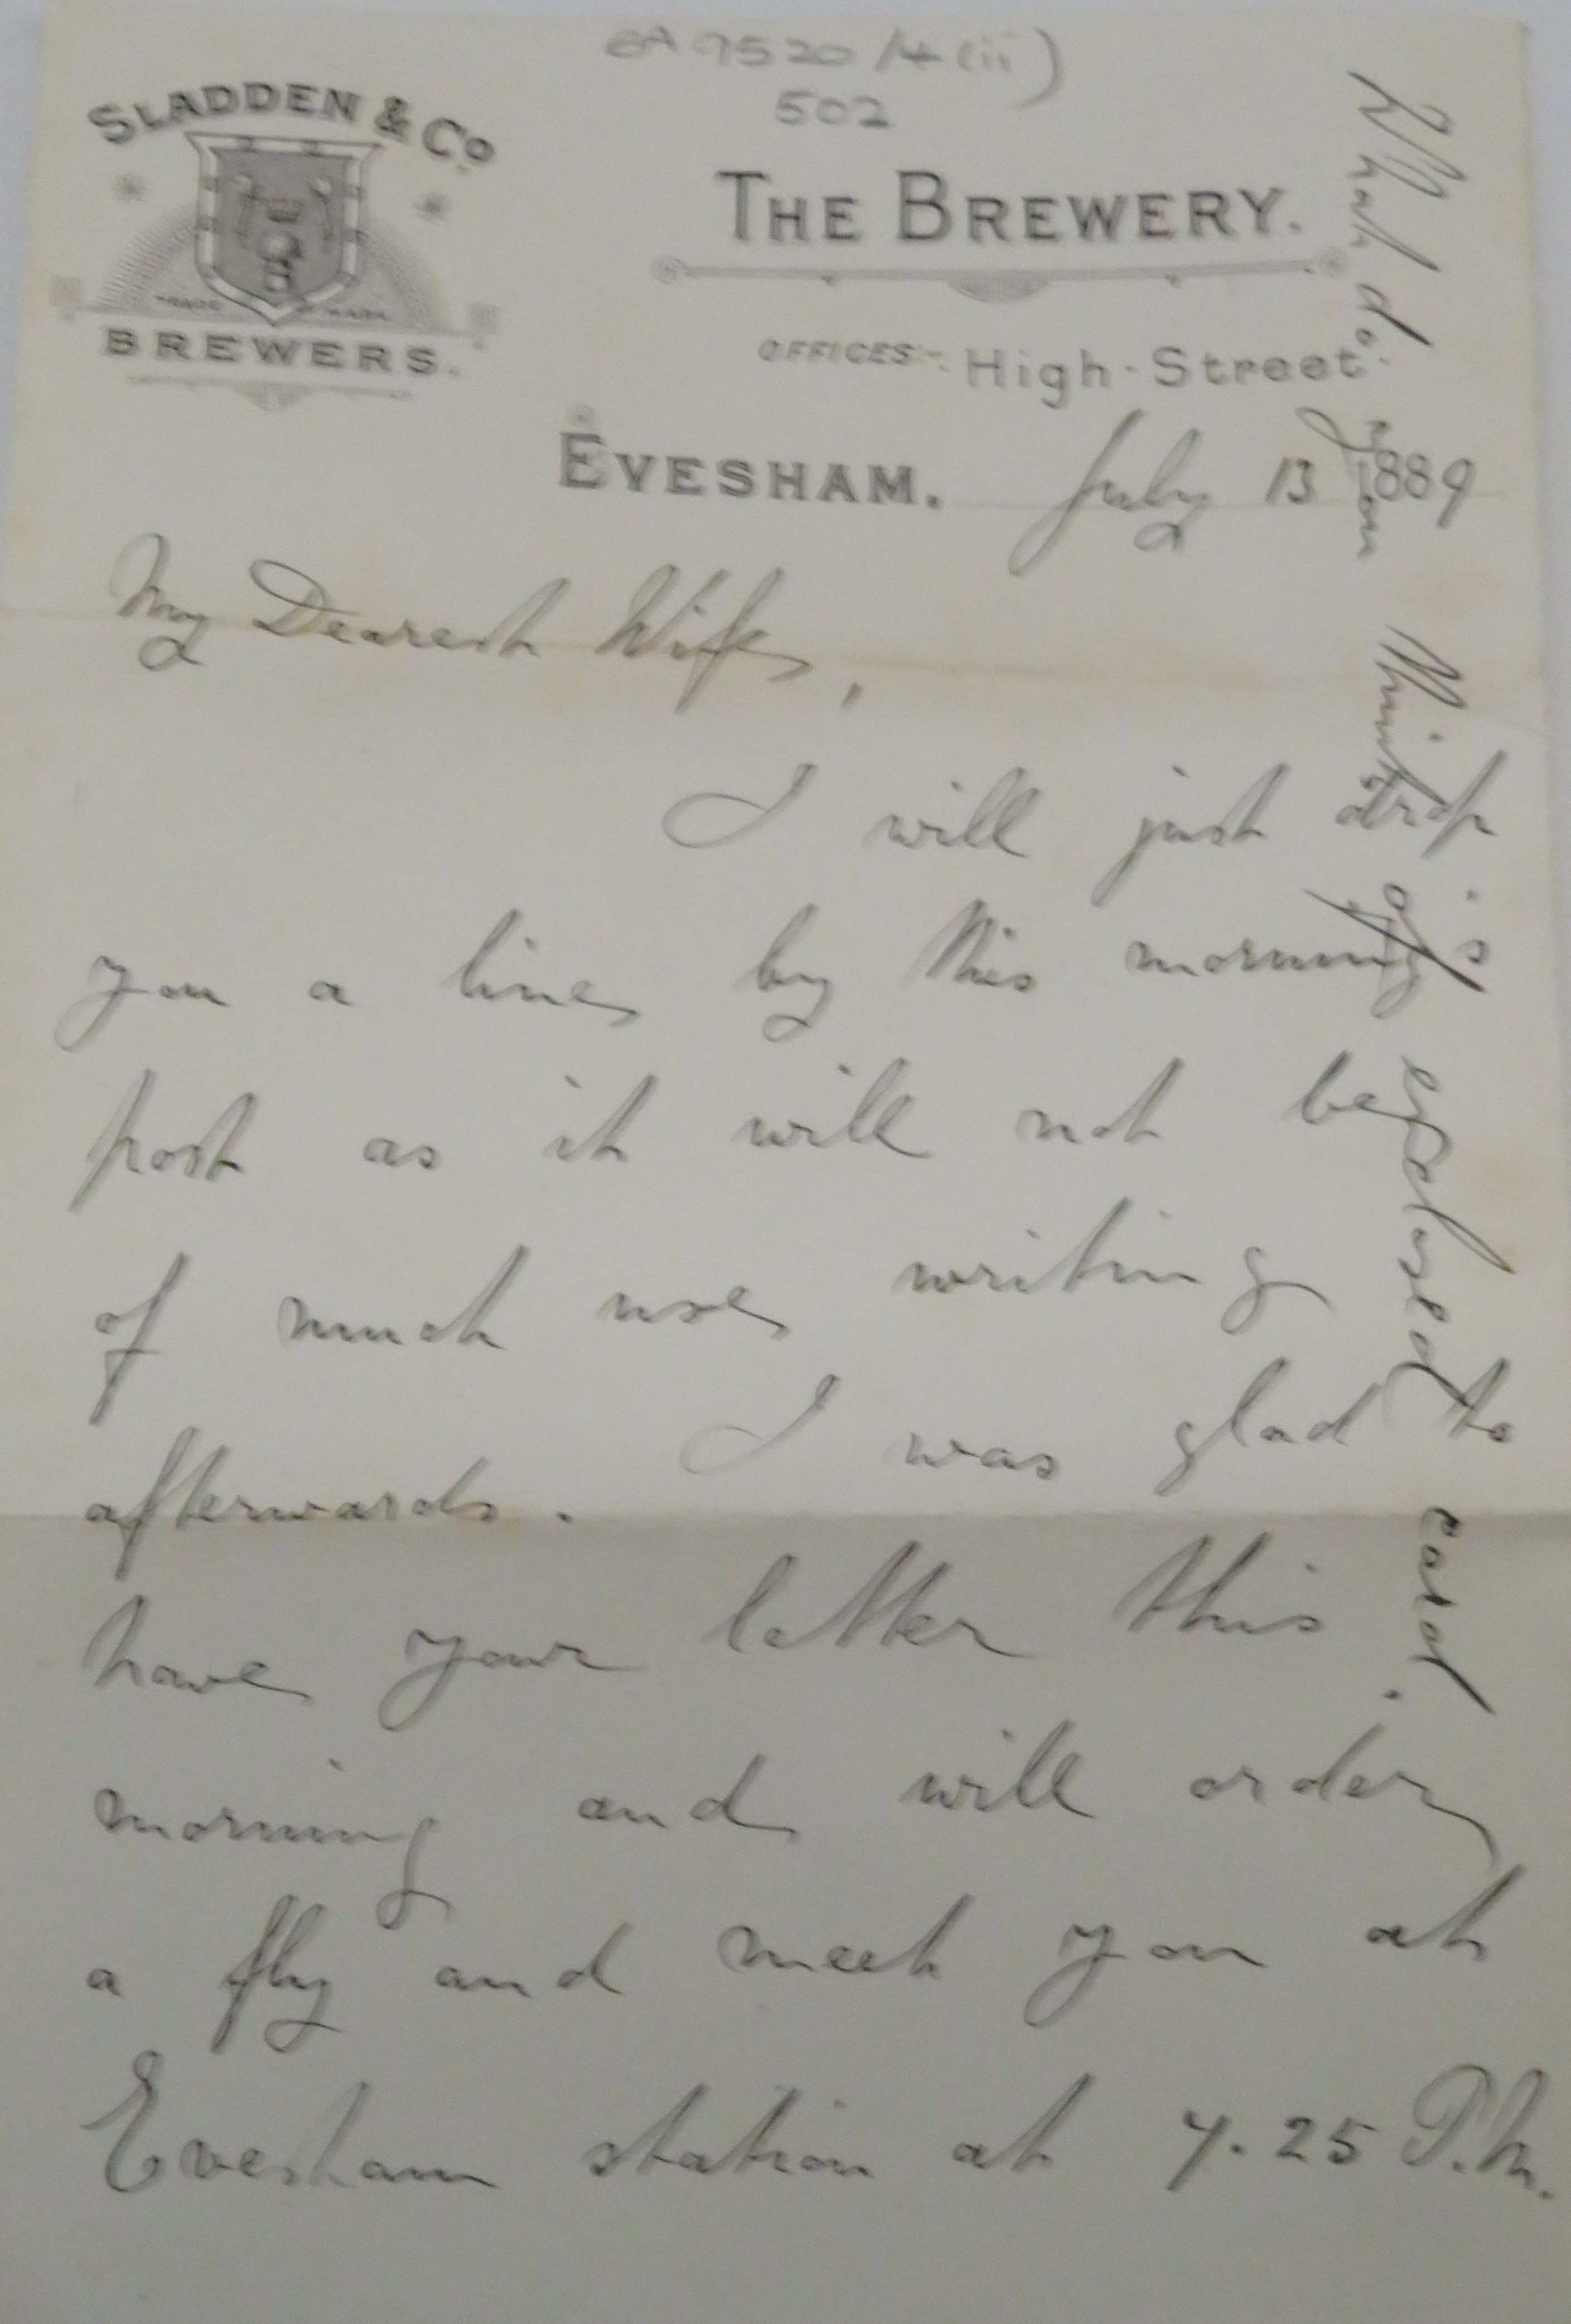 6A 9520/4 (ii)
502
SLADDEN & Co
TRADE MARK
BREWERS.
THE BREWERY.
OFFICES:- High Street.
EVESHAM. July 13 1889
My Dearest Wife,
I will just drop
you a line by this morning's
post as it will not be
of much use writing
afterwards. I was glad to
have your letter this
morning and will order
a fly and meet you at
Evesham station at 7.25 P.M.
What do you think of enclosed card.